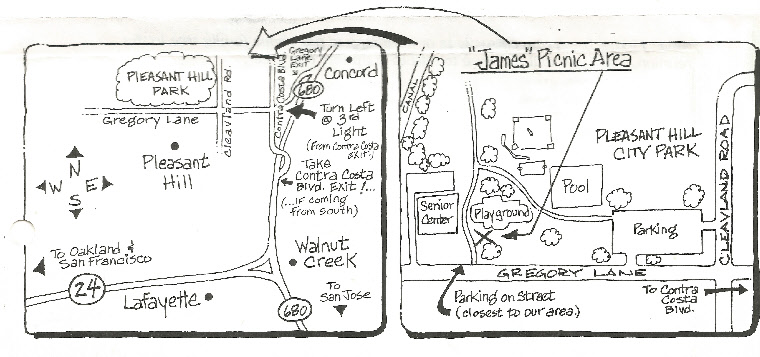 PLEASANT HILL
PARK
Cleavland Rd.
Contra Costa Blvd
Gregory
Lane
Exit
Concord
680
Gregory Lane
Turn Left
@ 3rd
Light
(from Contra Costa
EXIT!)
Pleasant
Hill
Take
Contra Costa
Blvd. EXIT!...
(...IF coming
from South)
N
W E
S
To Oakland &
San Francisco
24
Walnut
Creek
Lafayette
680
To
San Jose
"James" Picnic Area
CANAL
PLEASANT HILL
CITY PARK
Pool
Senior
Center
Playground
Parking
CLEAVLAND ROAD
GREGORY LANE
Parking on Street
(closest to our area.)
To Contra
Costa
Blvd.